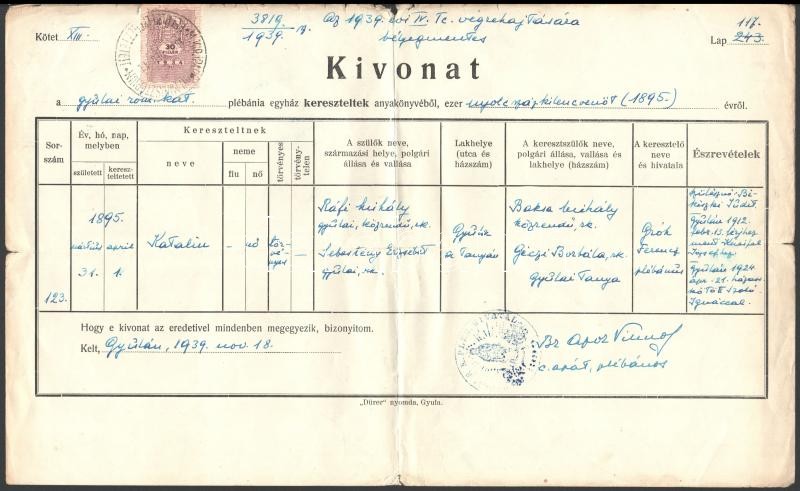 Kötet XIII.
30
3819/1939.
Az 1939. évi IV. Tc. végrehajtására
bélyegmentes
117.
Lap 243.
Kivonat
a gyulai róm. kat. plébánia egyház kereszteltek anyakönyvéből, ezer nyolcszázkilencvenöt (1895.) évről.
Sor-
szám
Év, hó, nap,
melyben
született
keresz-
teltetett
Kereszteltnek
neve
neme
fiu
nő
törvényes
törvény-
telen
A szülők neve,
származási helye, polgári
állása és vallása
Lakhelye
(utca és
házszám)
A keresztszülők neve,
polgári állása, vallása és
lakhelye (házszám)
A keresztelő
neve
és hivatala
Észrevételek
123.
1895.
március
31.
április
1.
Katalin
–
nő
tör-
vé-
nyes
–
Ráfi Mihály
gyulai, közrendű, rk.
Sebestény Erzsébet
gyulai, rk.
Gyulán
a Tanyán
Baksa Mihály
közrendű, rk.
Géczi Borbála, rk.
Gyulai Tanya
Grók
Ferenc
plébános
Szülésznő: Bi-
Judit
Gyulán 1912
febr. 13. férjhez
ment
Józsefhez
Gyulán 1924
ápr. 21. házas-
ságot kötött Szabó
Ignáccal.
Hogy e kivonat az eredetivel mindenben megegyezik, bizonyitom.
Kelt, Gyulán, 1939. nov. 18.
Br Apor Vilmos
c. apát, plébános
„Dürer” nyomda, Gyula.